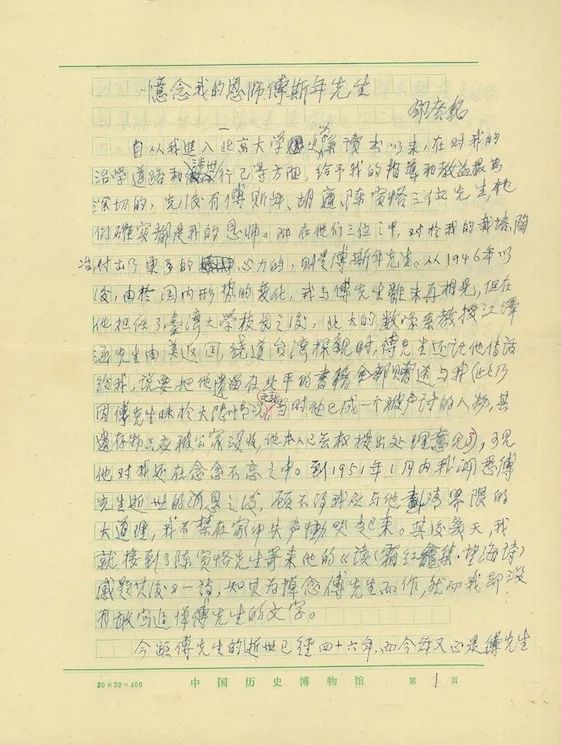 憶念我的恩师傅斯年先生
邓广铭
一
自从我進入北京大学史学系读书以来，在对我的
治学道路和涉世行己等方面，给予我的指导和教益最为
深切的，先後有傅斯年、胡適、陈寅恪三位先生，他
们確实都是我的恩师。而在他们三位之中，对於我的栽培、陶
冶付出了更多的心力的，则是傅斯年先生。从1946年以
後，由於国内形势的变化，我与傅先生雖未再相見，但在
他担任了臺湾大学校长之後，北大的数学系教授江泽
涵先生由美返国，繞道台湾探親时，傅先生还託他传话
给我，说要把他遗留在北平的書籍全部赠送与我（此乃
因傅先生昧於大陆情况，当时他已成一个被声讨的人物，其
遗存物品应被公家没收，他本人已无权提出处理意见），可见
他对我还在念念不忘之中。到1951年1月内我闻悉傅
先生逝世的消息之後，顾不得我应与他劃清界限的
大道理，我不禁在家中失声慟哭起来。其後幾天，我
就接到了陈寅恪先生寄来他的《读〈霜红龕集·望海诗〉
感题其後》一诗，知其为悼念傅先生而作，然而我却没
有敢写追悼傅先生的文字。
今距傅先生的逝世已经四十六年，而今年又正是傅先生
20×20=400
中国历史博物馆
第1页